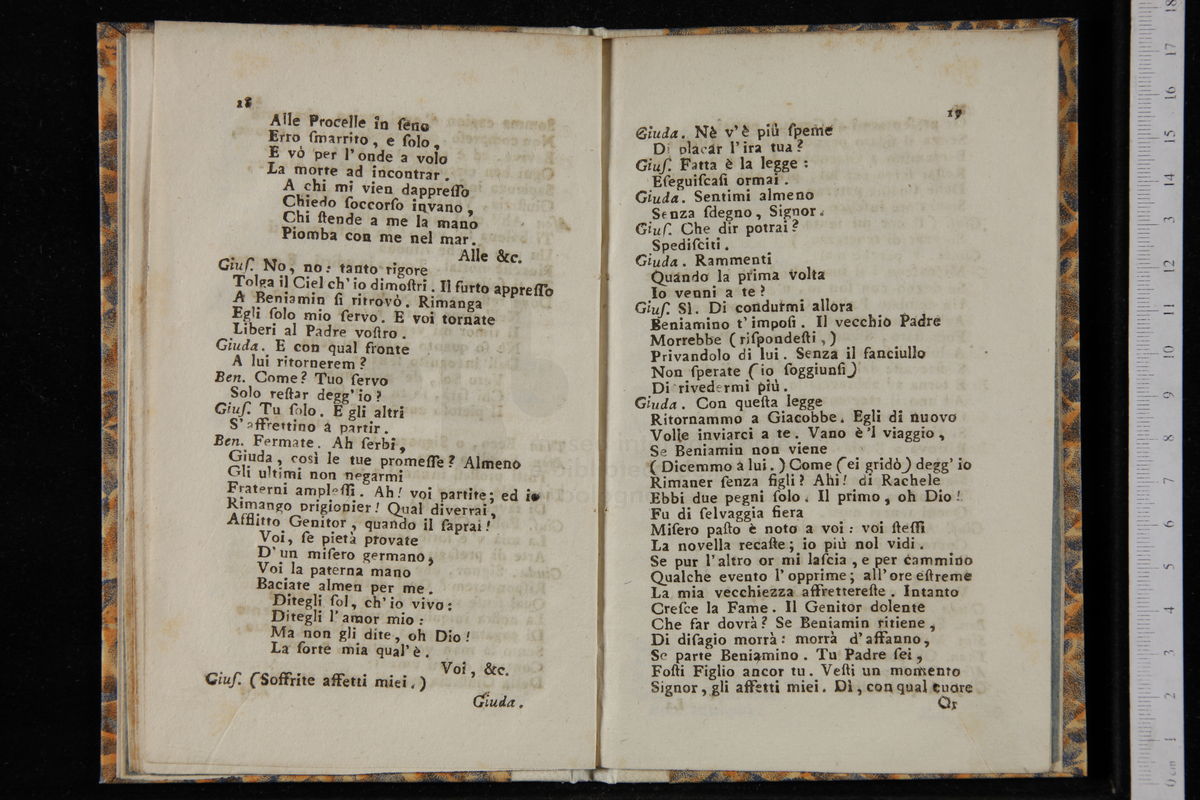 18
Alle Procelle in ſeno
Erro ſmarrito, e ſolo,
E vò per l'onde a volo
La morte ad incontrar.
A chi mi vien dappreſſo
Chiedo ſoccorſo invano,
Chi ſtende a me la mano
Piomba con me nel mar.
Alle &c.
Giuſ. No, no: tanto rigore
Tolga il Ciel ch'io dimoſtri. Il furto appreſſo
A Beniamin ſi ritrovò. Rimanga
Egli ſolo mio ſervo. E voi tornate
Liberi al Padre voſtro.
Giuda. E con qual fronte
A lui ritornerem?
Ben. Come? Tuo ſervo
Solo reſtar degg'io?
Giuſ. Tu ſolo. E gli altri
S'affrettino a partir.
Ben. Fermate. Ah ſerbi,
Giuda, così le tue promeſſe? Almeno
Gli ultimi non negarmi
Fraterni ampleſſi. Ah! voi partite; ed io
Rimango prigionier! Qual diverrai,
Afflitto Genitor, quando il ſaprai!
Voi, ſe pietà provate
D'un miſero germano,
Voi la paterna mano
Baciate almen per me.
Ditegli ſol, ch'io vivo:
Ditegli l'amor mio:
Ma non gli dite, oh Dio!
La ſorte mia qual'è.
Voi, &c.
Giuſ. (Soffrite affetti miei.)
Giuda.
19
Giuda. Nè v'è più ſpeme
Di placar l'ira tua?
Giuſ. Fatta è la legge:
Eſeguiſcaſi ormai.
Giuda. Sentimi almeno
Senza ſdegno, Signor.
Giuſ. Che dir potrai?
Spediſciti.
Giuda. Rammenti
Quando la prima volta
Io venni a te?
Giuſ. Sì. Di condurmi allora
Beniamino t'impoſi. Il vecchio Padre
Morrebbe (riſpondeſti,)
Privandolo di lui. Senza il fanciullo
Non ſperate (io ſoggiunſi)
Di rivedermi più.
Giuda. Con queſta legge
Ritornammo a Giacobbe. Egli di nuovo
Volle inviarci a te. Vano è 'l viaggio,
Se Beniamin non viene
(Dicemmo a lui.) Come (ei gridò) degg'io
Rimaner ſenza figli? Ahi! di Rachele
Ebbi due pegni ſolo. Il primo, oh Dio!
Fu di ſelvaggia fiera
Miſero paſto è noto a voi: voi ſteſſi
La novella recaſte; io più nol vidi.
Se pur l'altro or mi laſcia, e per cammino
Qualche evento l'opprime; all'ore eſtreme
La mia vecchiezza affrettereſte. Intanto
Creſce la Fame. Il Genitor dolente
Che far dovrà? Se Beniamin ritiene,
Di diſagio morrà: morrà d'affanno,
Se parte Beniamino. Tu Padre ſei,
Foſti Figlio ancor tu. Veſti un momento
Signor, gli affetti miei. Dì, con qual cuore
Or